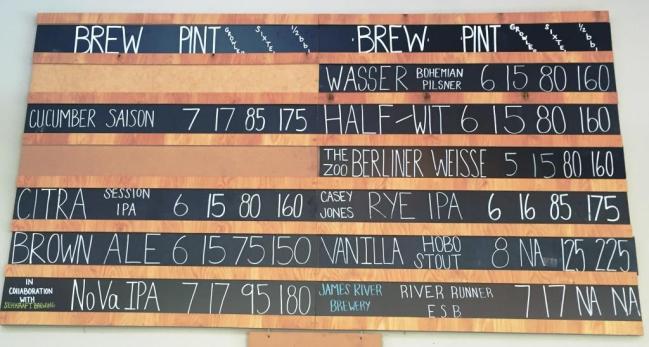 BREW PINT GROWLER SIXTEL 1/2 bbl
CUCUMBER SAISON 7 17 85 175
CITRA SESSION IPA 6 15 80 160
BROWN ALE 6 15 75 150
IN COLLABORATION WITH
NoVa IPA 7 17 95 180
BREW PINT GROWLER SIXTEL 1/2 bbl
WASSER BOHEMIAN PILSNER 6 15 80 160
HALF-WIT 6 15 80 160
THE ZOO BERLINER WEISSE 5 15 80 160
CASEY JONES RYE IPA 6 16 85 175
VANILLA HOBO STOUT 8 NA 125 225
JAMES RIVER BREWERY RIVER RUNNER ESB 7 17 NA NA